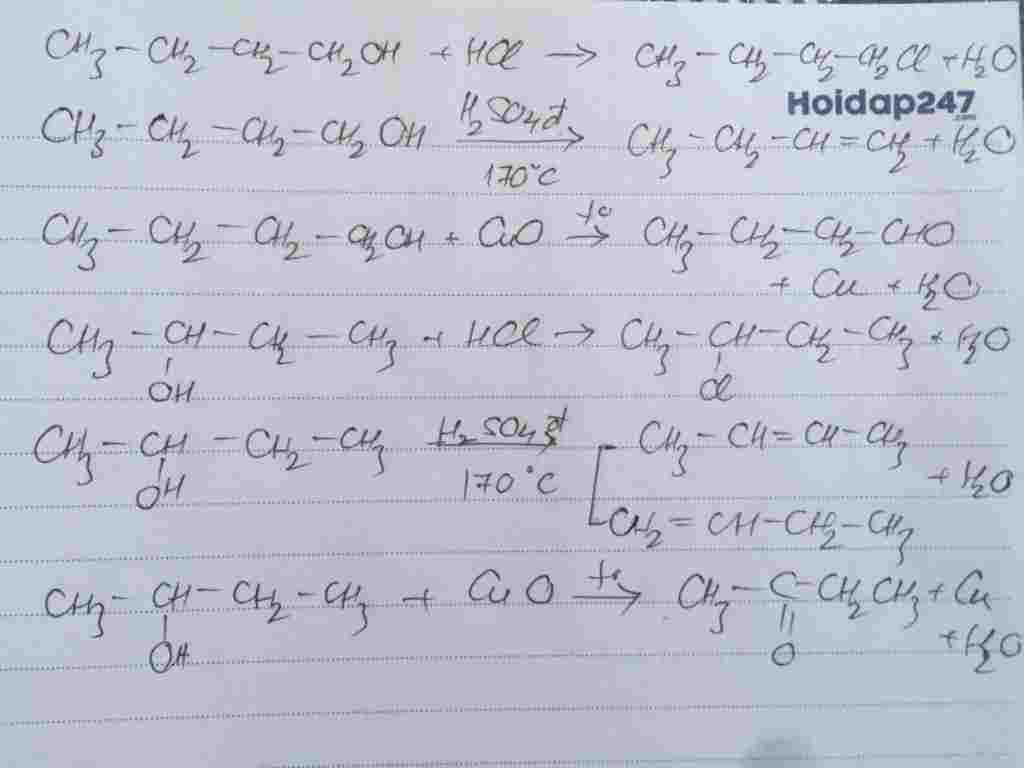 CH3 - CH2 - CH2 - CH2OH + HCl → CH3 - CH2 - CH2 - CH2Cl + H2O
Hoidap247.com
CH3 - CH2 - CH2 - CH2OH H2SO4đ → 170°C CH3 - CH2 - CH = CH2 + H2O
CH3 - CH2 - CH2 - CH2OH + CuO t° → CH3 - CH2 - CH2 - CHO
+ Cu + H2O
CH3 - CH - CH2 - CH3 + HCl → CH3 - CH - CH2 - CH3 + H2O
OH Cl
CH3 - CH - CH2 - CH3 H2SO4đ → 170°C CH3 - CH = CH - CH3
OH + H2O
CH2 = CH - CH2 - CH3
CH3 - CH - CH2 - CH3 + CuO t° → CH3 - C - CH2CH3 + Cu
OH || O + H2O